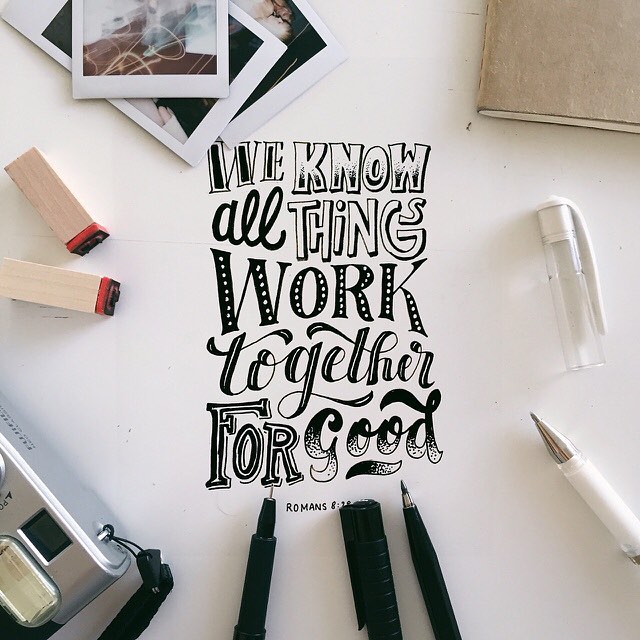 WE KNOW
all THiNGS
WORK
together
FOR good
ROMANS 8:28